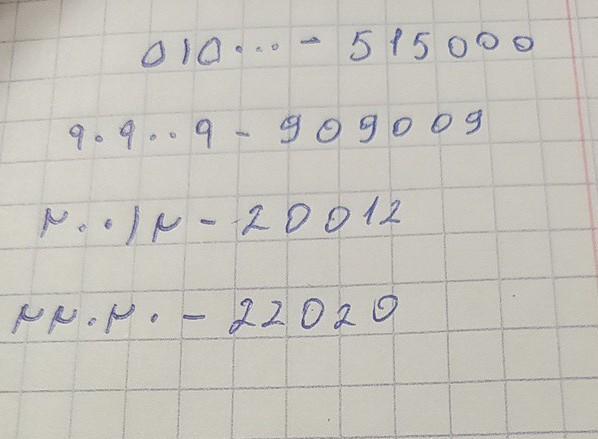 ٥١٥٠٠٠ - 515000
٩٠٩٠٠٩ - 909009
٢٠٠١٢ - 20012
٢٢٠٢٠ - 22020